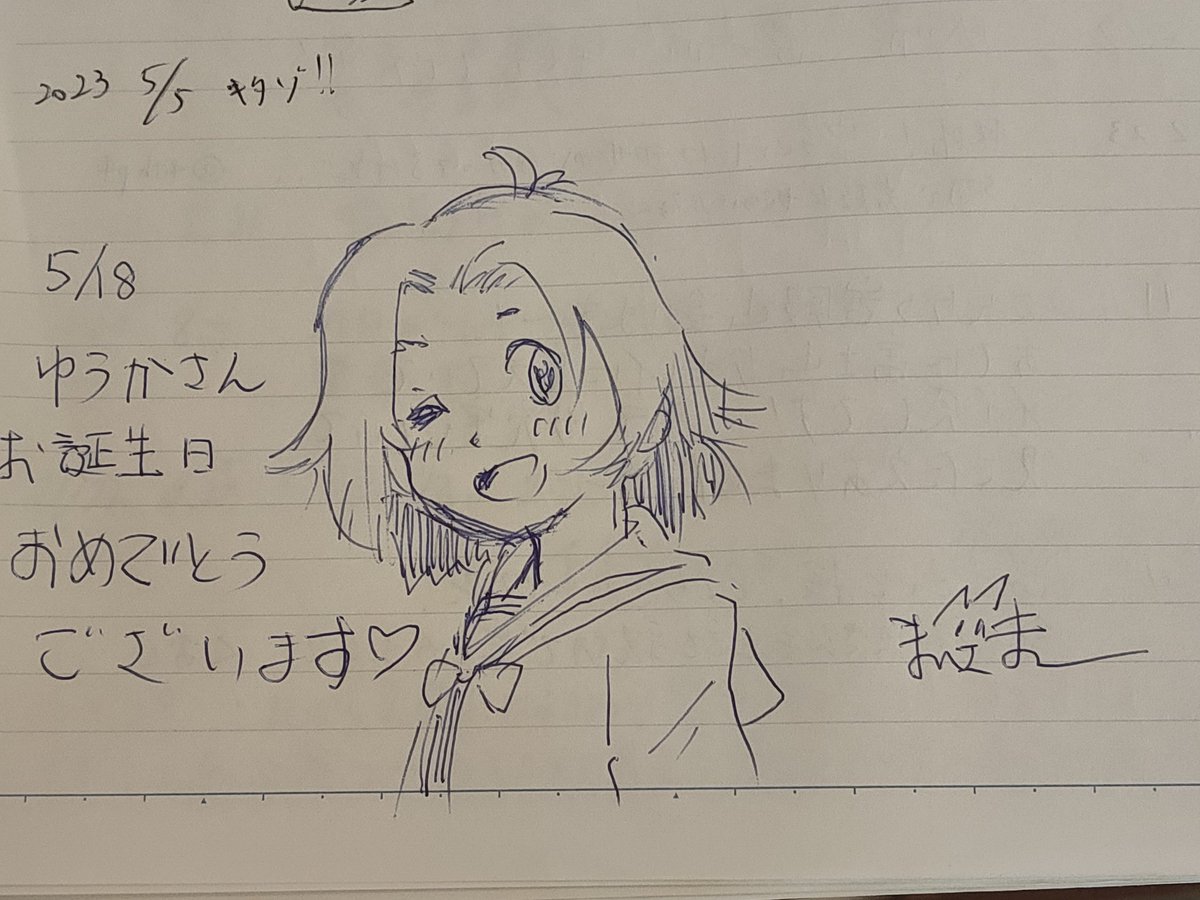 2023 5/5 キタゾ!!
5/18
ゆうかさん
お誕生日
おめでとう
ございます♡